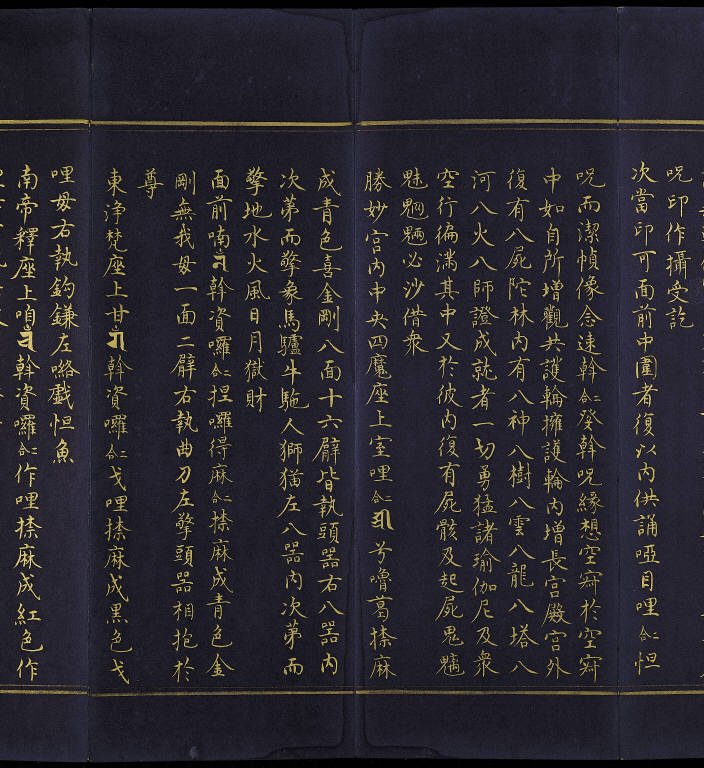 呪印作攝受訖
次當印可面前中圍者復以內供誦啞目哩合二怛
呪而潔幀像念速斡合二癸斡呪緣想空寂於空寂
中如自所增觀共護輪擁護輪內增長宮殿宮外
復有八屍陀林內有八神八樹八雲八龍八塔八
河八火八師證成就者一切勇猛諸瑜伽尼及衆
空行徧滿其中又於彼內復有屍骸及起屍鬼魑
魅魍魎必沙借衆
勝妙宮內中央四魔座上室哩合二兮嚕葛搽麻
成青色喜金剛八面十六臂皆執頭器右八器內
次第而擎象馬驢牛駞人獅猫左八器內次第而
擎地水火風日月獄財
面前喃斡資囉合二捏囉得麻合二搽麻成青色金
剛無我母一面二臂右執曲刀左擎頭器相抱於
尊
東淨梵座上甘斡資囉合二戈哩搽麻成黑色戈
哩母右執鈎鎌左𠹌戲怛魚
南帝釋座上咱斡資囉合二作哩搽麻成紅色作